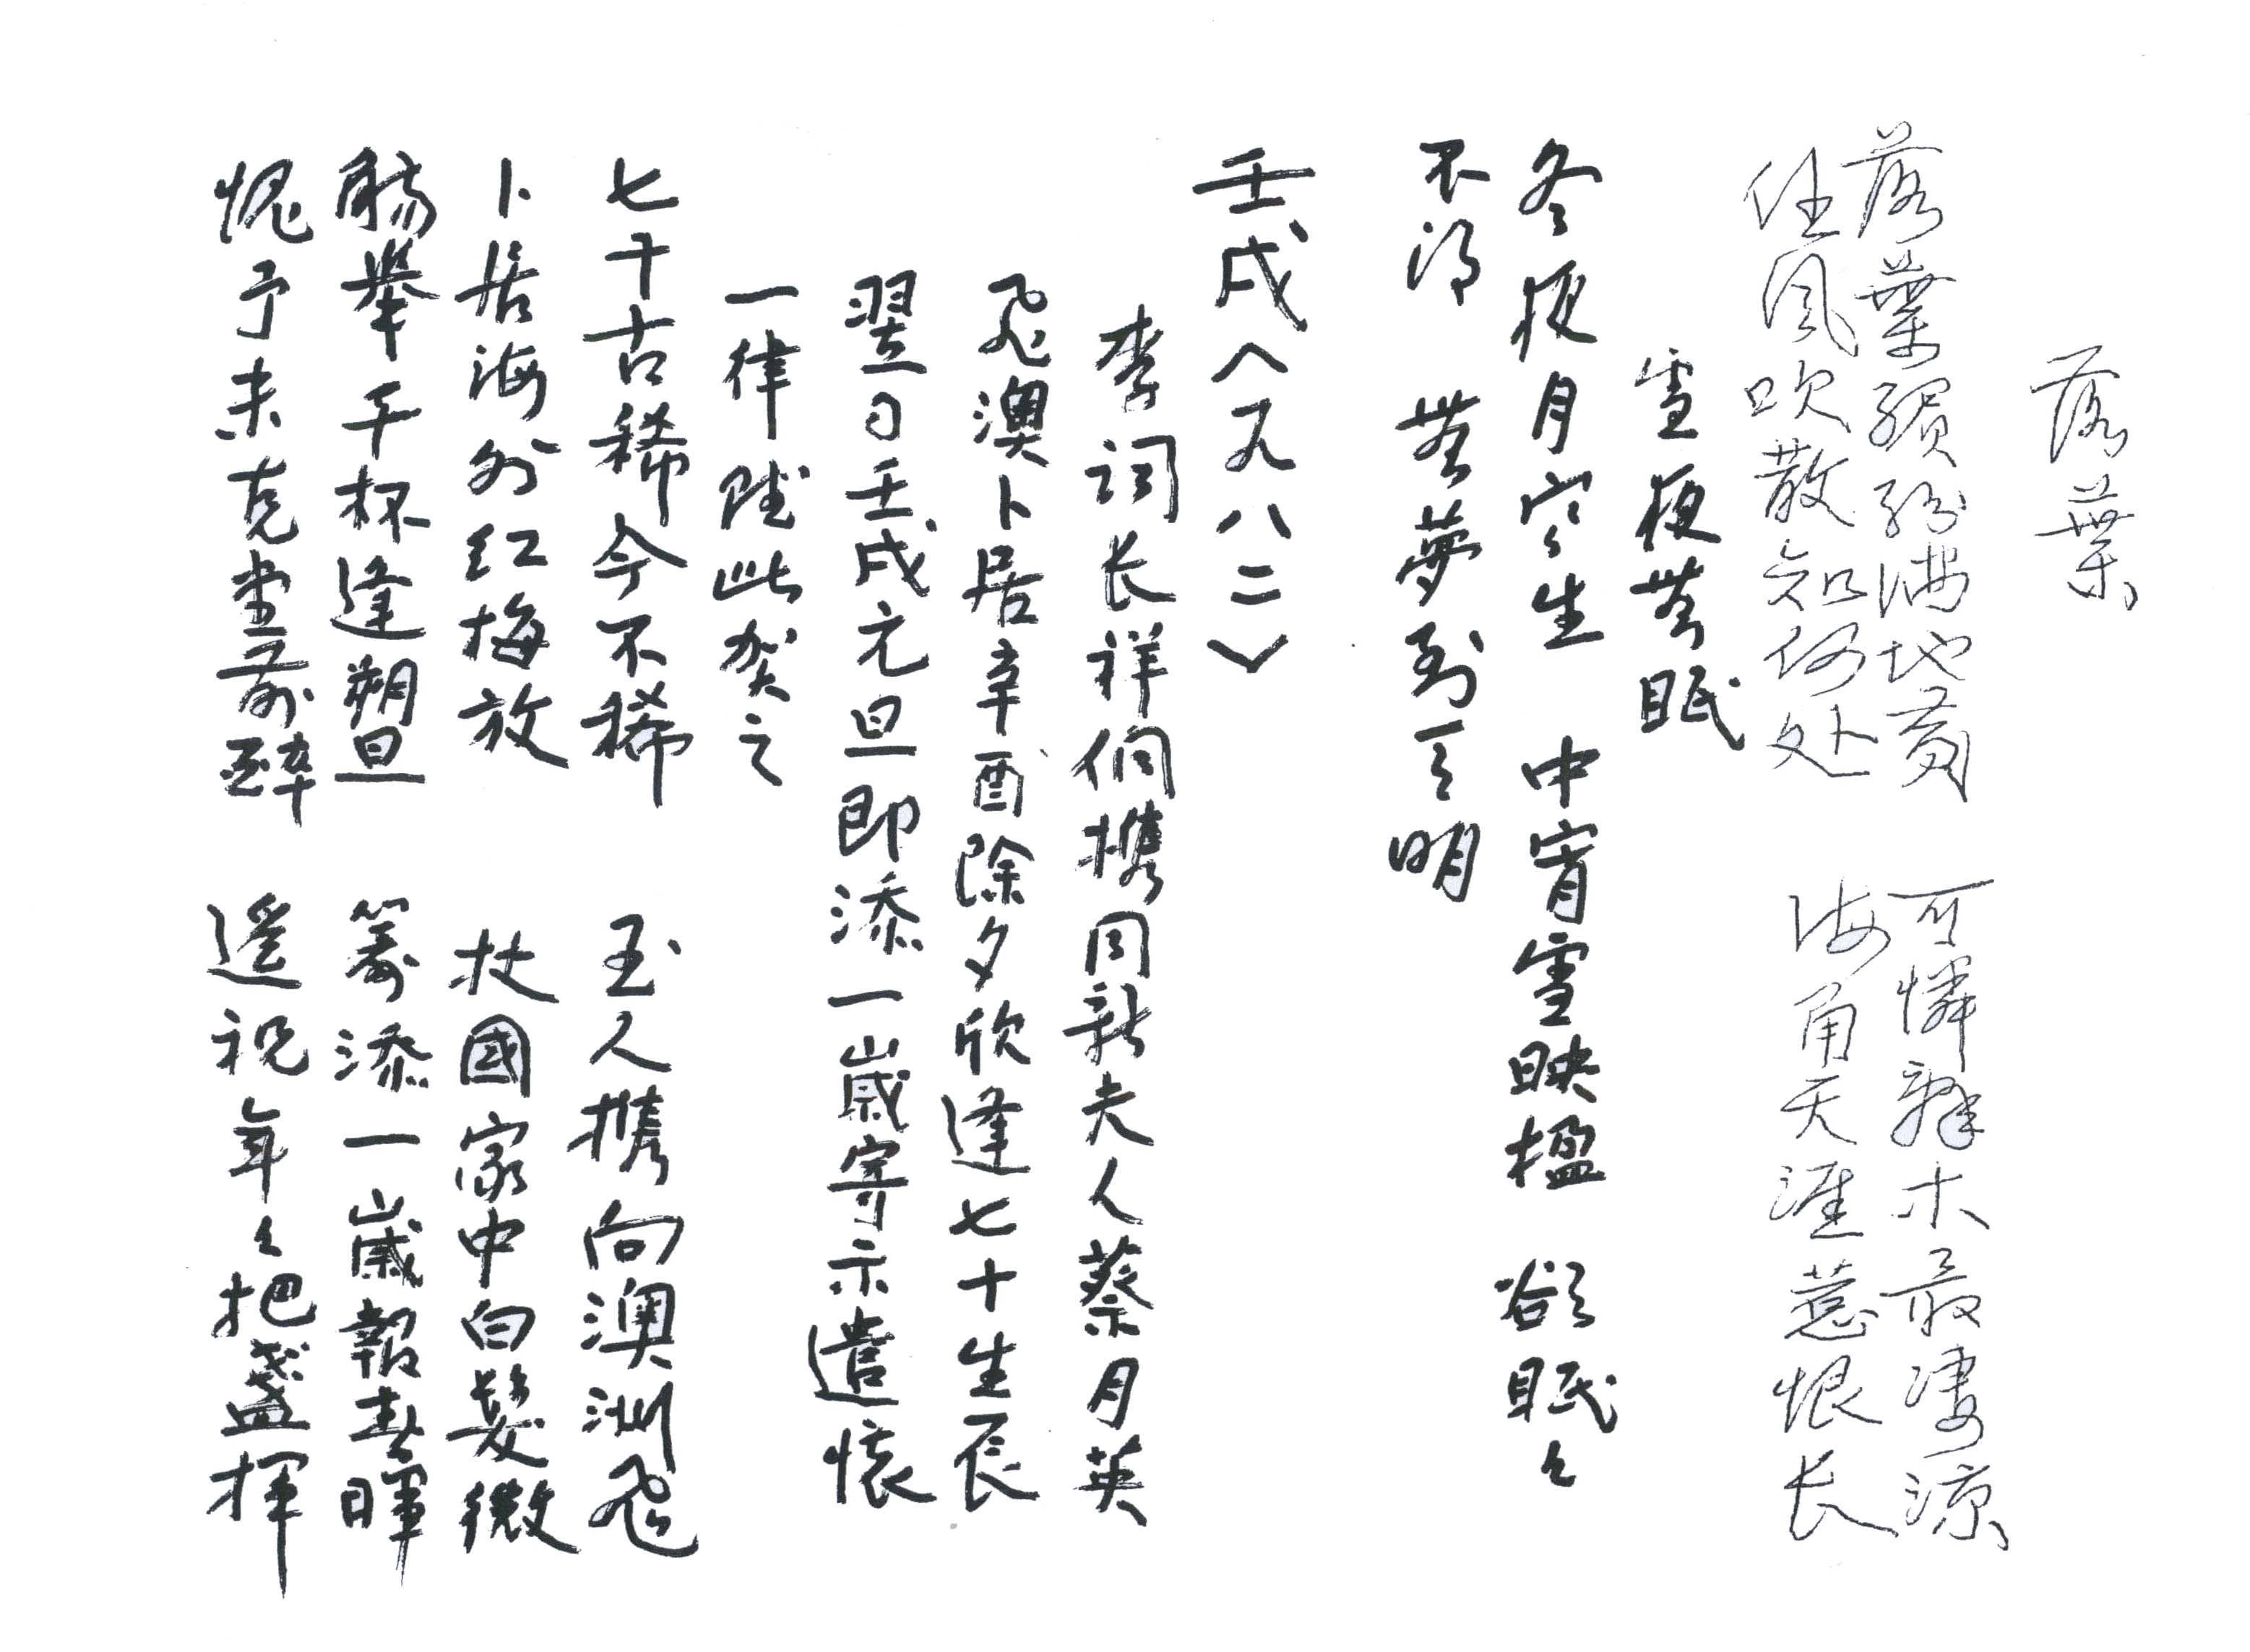 落葉
落葉繽紛滿地黄 可憐辭木最凄涼
任风吹散知何处 海角天涯惹恨长
雪夜無眠
冬夜月空生 中宵雪映楹 欲眠々
不得 無夢到天明
壬戌〈一九八二〉
李词长祥伺携同新夫人蔡月英
飛澳卜居辛酉除夕欣逢七十生辰
翌日壬戌元旦即添一歲寄示遣懷
一律賦此贺之
七十古稀今不稀 玉人携向澳洲飛
卜居海外红梅放 杖國家中白髮微
觴舉千杯逢朔旦 筹添一歲報春暉
愧予未克堂前醉 遙祝年々把盞揮